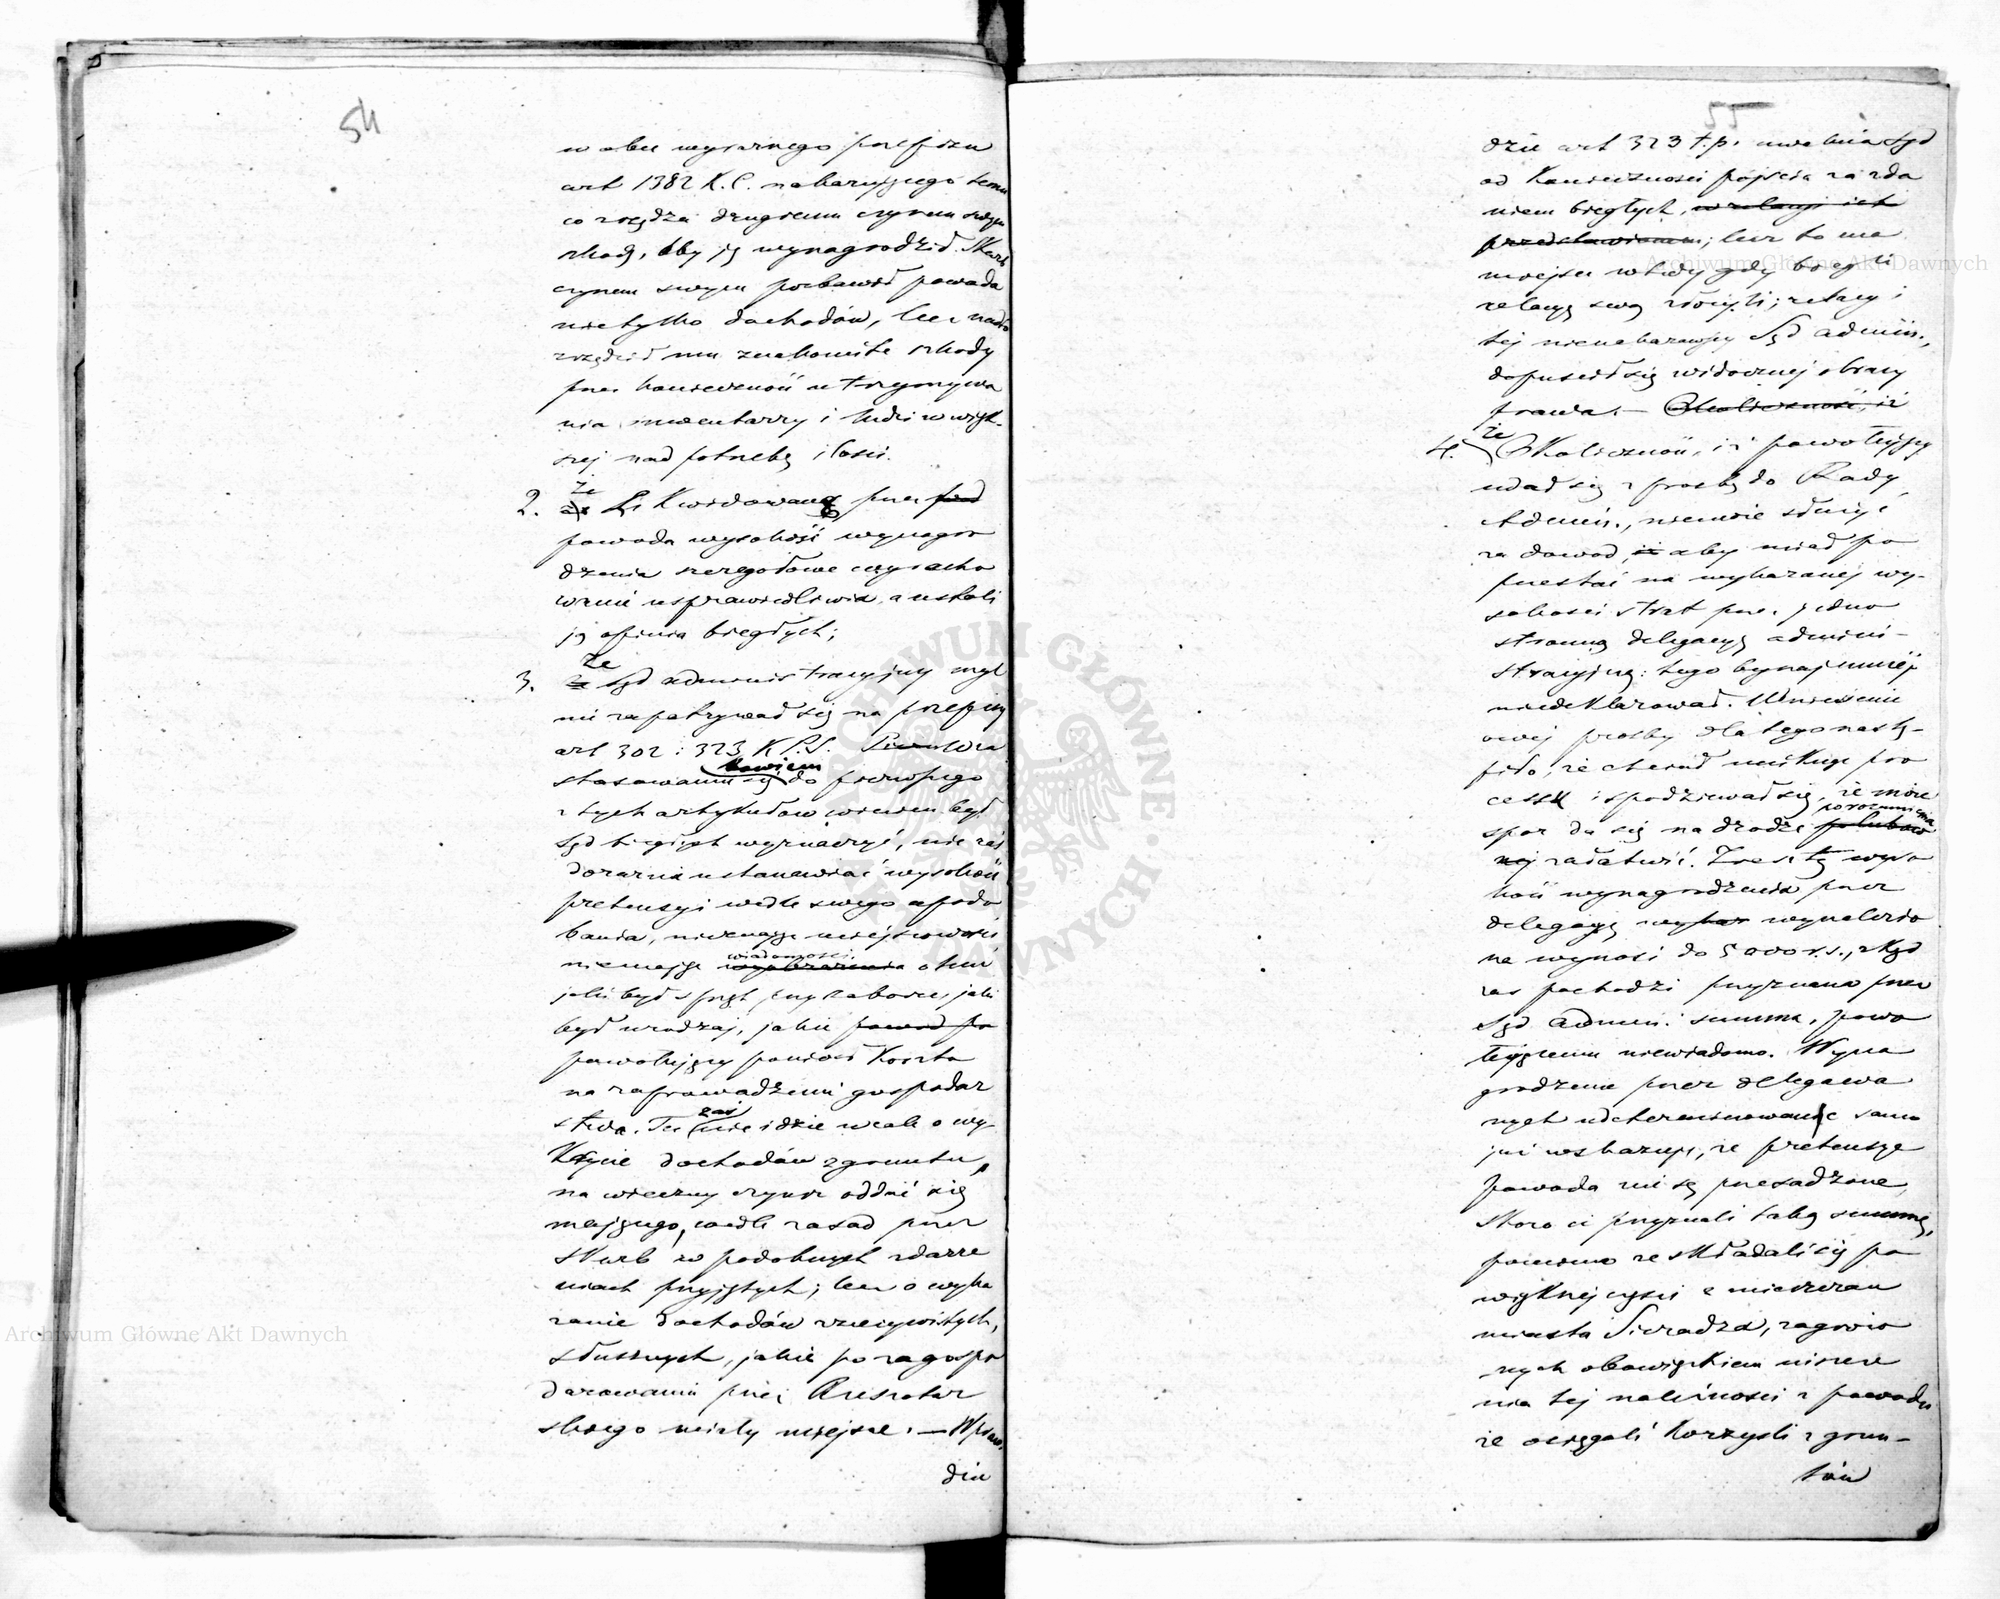 54
w obec wyraźnego przepisu
art 1382 K. C. nakazującego temu
co rządza drugiemu czynem swoim
szkodę, aby ją wynagrodził. Skarb
czynem swym pozbawił powoda
nietylko dochodów, lecz nadto
rządził mu znakomite szkody
przez konieczność utrzymywa
nia inwentarzy i ludzi w więk-
szej nad potrzebę ilości.
2. że Likwidowaną przez
powoda wysokość wynagro
dzenia szczegółowe wyracho
wanie usprawiedliwia, a ustali
ją opinia biegłych;
3. że Sąd administracyjny myl
nie zapatrywał się na przepisy
art 302 i 323 K.P.S.
stosowaniu się bowiem do pierwszego
z tych artykułów winien był
Sąd biegłych wyznaczyć, nie zaś
doraźnie ustanawiać wysokość
pretensyi wedle swego upodo
bania, nieznając miejscowości,
niemając wiadomości o tem
jaki był sprzęt przy zaborze, jaki
był urodzaj, jakie powod po
powołujący poniósł koszta
na zaprowadzenie gospodar
stwa. Tu zaś nie idzie wcale o wy-
krycie dochodów z gruntu,
na wieczny czynsz oddać się
mającego, wedle zasad przez
Skarb w podobnych zdarze
niach przyjętych; lecz o wyka
zanie dochodów rzeczywistych,
słusznych, jakie po zagospo
darowaniu przez
skiego miały miejsce. — Wpraw
dzie
55
dzie art 323 t. p. uwalnia Sąd
od konieczności pójścia za zda
niem biegłych, w relacyi ich
przedstawionem; lecz to ma
miejsce wtedy gdy biegli
relacyę swą złożyli; relacyi
tej nienakazawszy Sąd admin.,
dopuścił się widocznej obrazy
prawa. — Okoliczność, iż
4. że Okoliczność, iż powołujący
udał się z prośbą do Rady
Admin., niemoże służyć
za dowód, iż aby miał po
przestać na wykazanej wy-
sokości strat przez jedno
stronną delegacyę admini-
stracyjną: tego bynajmniej
niedeklarował. Wniesienie
owej prośby dlatego nastą-
piło, że chciał uniknąć pro
cessu i spodziewał się, że może
spór da się na drodze porozumienia polubow
nej załatwić. Zresztą wyso
kość wynagrodzenia przez
delegacyę wykaz wynalezio
na wynosi do 5000 r.s., zkąd
zaś pochodzi przyznana przez
Sąd Admin. summa, powo
łującemu niewiadomo. Wyna
grodzenie przez delegowa
nych udeterminowane samo
już wskazuje, że pretensye
powoda nie są przesadzone,
skoro ci przyznali taką summę,
pomimo że składali się po
większej części z mieszczan
miasta Sieradza, zagrożo
nych obowiązkiem niszcze
nia tej należności z powodu
że osięgali korzyści z grun-
tów
Archiwum Główne Akt Dawnych
Archiwum Główne Akt Dawnych
ARCHIWUM GŁÓWNE AKT DAWNYCH